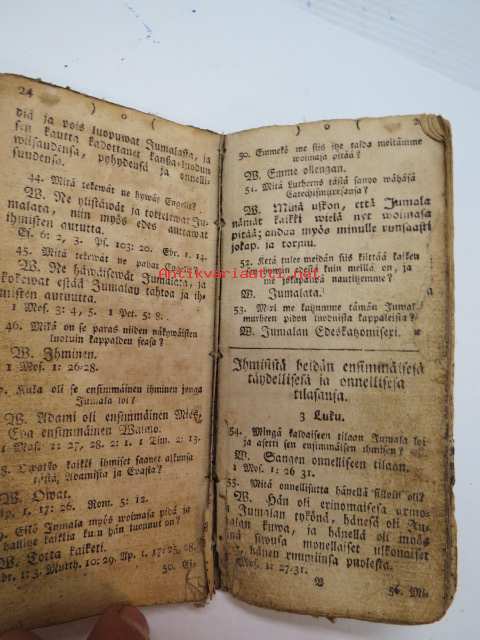 24 ) o (
diä ja pois luopuwat Jumalasta, ja
sen kautta kadottanet kansa-luodun
wiisaudensa, pyhydensä ja onnelli-
suudensa.
44. Mitä tekewät ne hywät Engelit?
W. Ne ylistäwät ja tottelewat Ju-
malata, niin myös edes auttawat
ihmisten autuutta.
Es. 6: 2, 3. Ps. 103: 20. Ebr. 1. 14.
45. Mitä tekewät ne pahat Engelit?
W. Ne häwäisewät Jumalata, ja
kokewat estää Jumalan tahtoa ja ih-
misten autuutta.
1 Mos. 3: 4, 5. 1 Pet. 5: 8.
46. Mikä on se paras niiden näkywäisten
luotuin kappalden seasa?
W. Ihminen.
1 Mos. 1: 26-28.
Kuka oli se ensimmäinen ihminen jonga
Jumala loi?
W. Adami oli ensimmäinen Mies,
Ewa ensimmäinen Waimo.
1 Mos. 1: 27, 28. 2: 1. 1 Tim. 2: 13.
Owatko kaikki ihmiset saanet alkunsa
Adamista ja Ewasta?
W. Owat.
Ap. 1. 17: 26. Rom. 5: 12.
Eikö Jumala myös woimasa pidä ja
hallitze kaikkia kuin hän luonnut on?
W. Totta kaiketi.
Ebr. 1: 3. Matth. 10: 29. Ap. 1. 17: 25, 28.
50.
) o (
50. Emmekö me siis itze taida meitämme
woimasa pitää?
W. Emme ollengan.
51. Mitä Lutherus tästä sanoo wähäsä
Catechismuxesansa?
W. Minä uskon, että Jumala
nämät kaikki wielä nyt woimasa
pitää; andaa myös minulle runsaasti
jokap. ja torjuu.
52. Ketä tulee meidän siis kiittää kaiken
hywän edestä kuin meillä on, ja
me jokapäiwä nautitzemme?
W. Jumalata.
53. Mixi me kutzumme tämän Jumalan
murheen pidon luoduista kappaleista?
W. Jumalan Edeskatzomisexi.
Ihmisistä heidän ensimmäisesä
täydellisesä ja onnellisesa
tilasansa.
3 Luku.
54. Mingä kaldaiseen tilaan Jumala loi
ja asetti sen ensimmäisen ihmisen?
W. Sangen onnelliseen tilaan.
1 Mos. 1: 26 31.
55. Mitä onnellisutta hänellä silloin oli?
W. Hän oli erinomaisesa armosa
Jumalan tykönä, hänesä oli Ju-
malan kuwa, ja hänellä oli myös
monellaiset ulkonaiset
hänen ruumiinsa puolesta.
Mos. 1: 27-31.
B
56. Mi-
Antikvariaatti.net